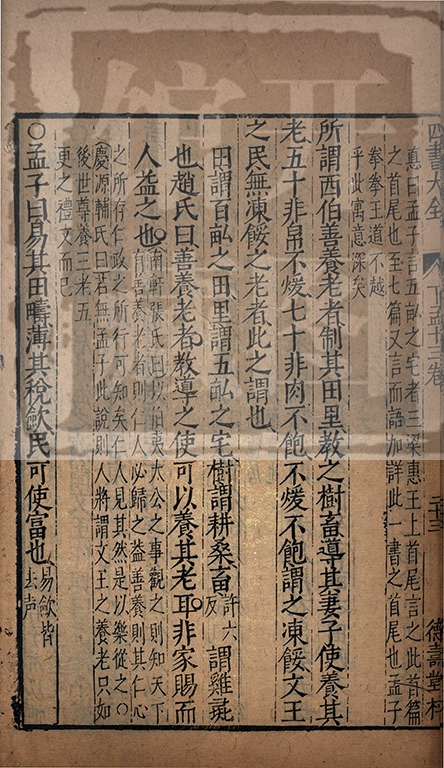 四書大全 下孟十三卷 二十三 德壽堂梓
惠曰孟子言五畝之宅者三梁惠王上首尾言之此首篇
之首尾也至七篇又言而語加詳此一書之首尾也孟子
拳拳王道不越
乎此寓意深矣
所謂西伯善養老者制其田里教之樹畜導其妻子使養其
老五十非帛不煖七十非肉不飽不煖不飽謂之凍餒文王
之民無凍餒之老者此之謂也
田謂百畝之田里謂五畝之宅樹謂耕桑畜許六反謂雞彘
也趙氏曰善養老者教導之使可以養其老耳非家賜而
人益之也
南軒張氏曰以伯夷大公之事觀之則知天下
有善養老者則仁人必歸之益善養則其仁心
之所存仁政之所行可知矣仁人見其然是以樂從之○
慶源輔氏曰若無孟子此說則人將謂文王之養老只如
後世尊養三老五
更之禮文而已
○孟子曰易其田疇薄其稅斂民可使富也易斂皆去声